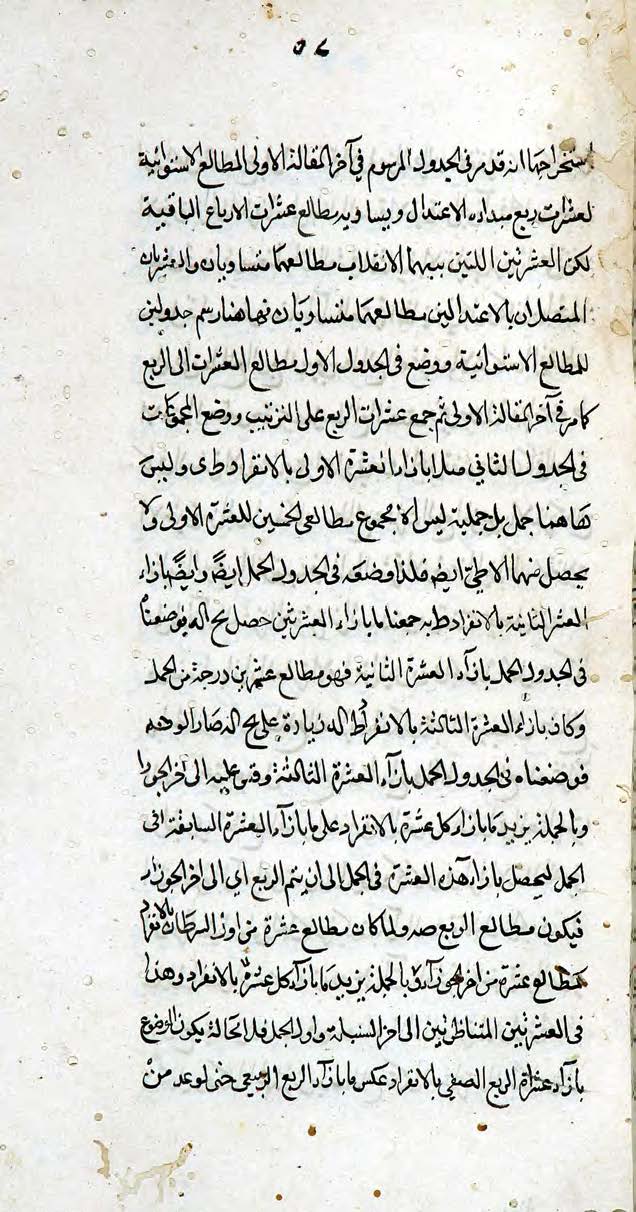 استخراجها انه قد مر في الجدول المرسوم في آخر المقالة الاولى المطالع الاستوائية
لعشرات ربع مبداءه الاعتدال ويساويه مطالع عشرات الارباع الباقية
لكن العشرتين اللتين بينهما الانقلاب مطالعهما متساويان والعشرتان
المتصلتان بالاعتدالين مطالعهما متساويان فهاهنا رسم جدولين
للمطالع الاستوائية ووضع في الجدول الاول مطالع العشرات الى الربع
كما مر في آخر المقالة الاولى ثم جمع عشرات الربع على الترتيب ووضع المجموعات
في الجدول الثاني مثلا بازاء العشرة الاولى بالانفراد ط ى وليس
هاهنا جمل بل جملية ليس الا مجموع مطالعى الخمسين للعشرة الاولى ولا
يحصل منهما الا ط ى ايضا فلذا وضعه في الجدول الجمل ايضا وايضا بازاء
العشرة الثانية بالانفراد ط يه جمعنا ما بازاء العشرتين حصل يح اله فوضعناه
في الجدول الجمل بازاء العشرة الثانية فهو مطالع عشرين درجة من الحمل
وكان بازاء العشرة الثالثة بالانفراد ط اله زيادة على يح اله صار الوهه
فوضعناه في الجدول الجمل بازاء العشرة الثالثة وقس عليه الى آخر الجوزا
وبالجملة يزيد ما بازاء كل عشرة بالانفراد على ما بازاء العشرة السابقة في
الجمل ليحصل بازاء هذه العشرة في الجمل الى ان يتم الربع اي الى اخر الجوزاء
فيكون مطالع الربع صه ولما كان مطالع عشرة من اول السرطان بالانفراد
كمطالع عشرة من اخر الجوزاء وبالجملة يزيد ما بازاء كل عشرة بالانفراد وهذا
في العشرتين المتناظرتين الى اخر السنبلة واول الحمل فلا محالة يكون الموضوع
بازاء عشرات الربع الصيفي بالانفراد عكس ما بازاء الربع الربيعي حتى لو عد من